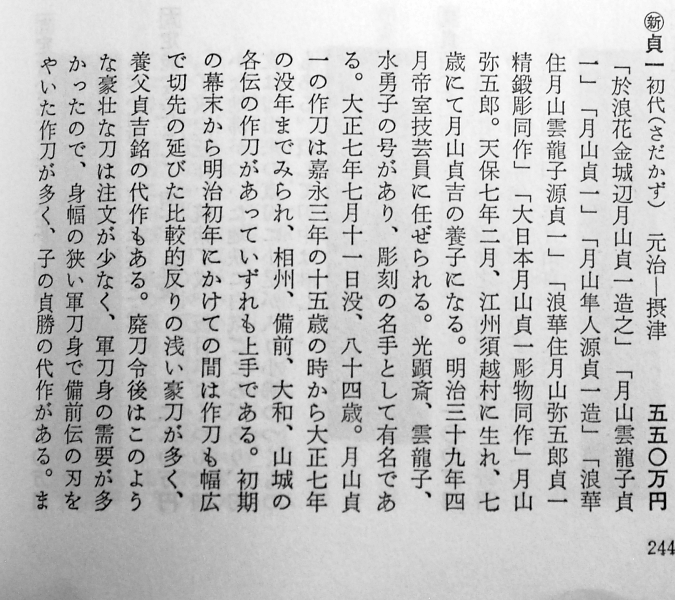 ㊟新貞一 初代(さだかず) 元治―摂津 五五〇万円
「於浪花金城辺月山貞一造之」「月山雲龍子貞
一」「月山貞一」「月山隼人源貞一造」「浪華
住月山雲龍子源貞一」「浪華住月山弥五郎貞一
精鍛彫同作」「大日本月山貞一彫物同作」月山
弥五郎。天保七年二月、江州須越村に生れ、七
歳にて月山貞吉の養子になる。明治三十九年四
月帝室技芸員に任ぜられる。光顕斎、雲龍子、
水勇子の号があり、彫刻の名手として有名であ
る。大正七年七月十一日没、八十四歳。月山貞
一の作刀は嘉永三年の十五歳の時から大正七年
の没年までみられ、相州、備前、大和、山城の
各伝の作刀があっていずれも上手である。初期
の幕末から明治初年にかけての間は作刀も幅広
で切先の延びた比較的反りの浅い豪刀が多く、
養父貞吉銘の代作もある。廃刀令後はこのよう
な豪壮な刀は注文が少なく、軍刀身の需要が多
かったので、身幅の狭い軍刀身で備前伝の刃を
やいた作刀が多く、子の貞勝の代作がある。ま
244